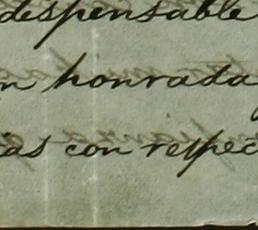 despensable
n honrada
ias con respec